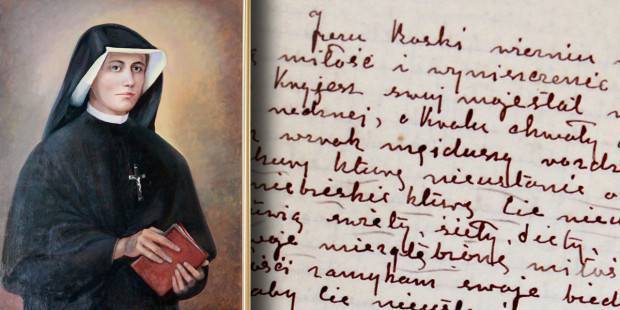 Jezu Boski wieźniu
miłość i wyniszczenie
Kryjesz swuj majestat
nędznej, o Krulu chwały
wzrok mej duszy rozdz
hury kture nieustanie o
niebieskie kture Cie nieu
ówią święty, święty, święty,
woje niezgłębione miłoś
ości zamykam swoje bied
aby Cie